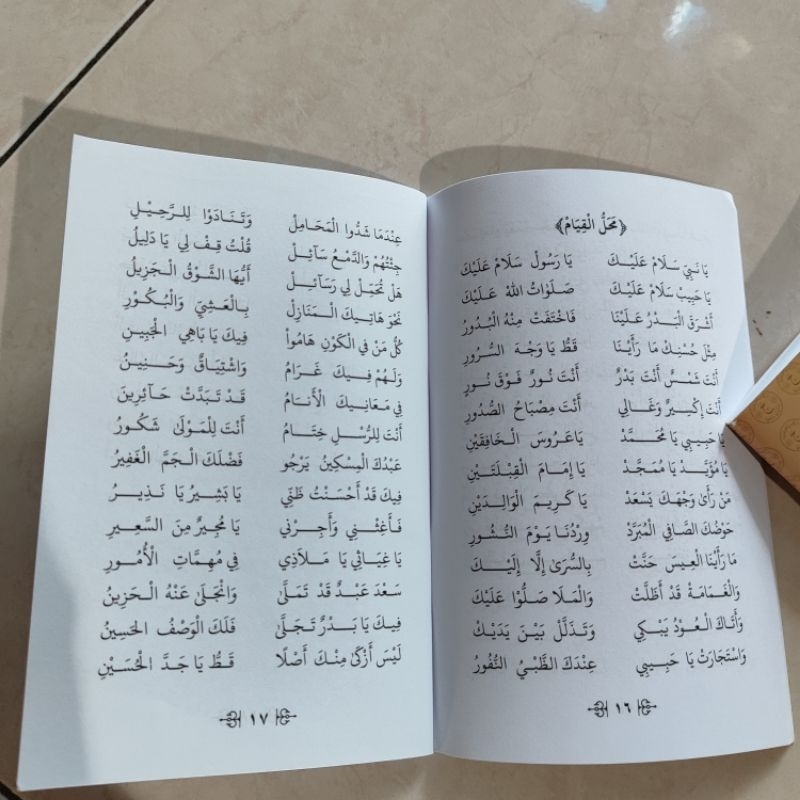 ﴿مَحَلُّ الْقِيَامْ﴾
يَا نَبِيْ سَلَامْ عَلَيْكَ يَا رَسُولْ سَلَامْ عَلَيْكَ
يَا حَبِيبْ سَلَامْ عَلَيْكَ صَلَوَاتُ اللهْ عَلَيْكَ
أَشْرَقَ الْبَدْرُ عَلَيْنَا فَاخْتَفَتْ مِنْهُ الْبُدُورُ
مِثْلَ حُسْنِكْ مَا رَأَيْنَا قَطُّ يَا وَجْهَ السُّرُورِ
أَنْتَ شَمْسٌ أَنْتَ بَدْرٌ أَنْتَ نُورٌ فَوْقَ نُورِ
أَنْتَ إِكْسِيرٌ وَغَالِي أَنْتَ مِصْبَاحُ الصُّدُورِ
يَا حَبِيبِي يَا مُحَمَّدْ يَا عَرُوسَ الْخَافِقَيْنِ
يَا مُؤَيَّدْ يَا مُمَجَّدْ يَا إِمَامَ الْقِبْلَتَيْنِ
مَنْ رَأَىٰ وَجْهَكَ يَسْعَدْ يَا كَرِيمَ الْوَالِدَيْنِ
حَوْضُكَ الصَّافِي الْمُبَرَّدْ وِرْدُنَا يَوْمَ النُّشُورِ
مَا رَأَيْنَا الْعِيسَ حَنَّتْ بِالسُّرَىٰ إِلَّا إِلَيْكَ
وَالْغَمَامَةْ قَدْ أَظَلَّتْ وَالْمَلَا صَلُّوْا عَلَيْكَ
وَأَتَاكَ الْعُوْدُ يَبْكِي وَتَذَلَّلْ بَيْنَ يَدَيْكَ
وَاسْتَجَارَتْ يَا حَبِيبِي عِنْدَكَ الظَّبْيُ النُّفُورُ
١٦
عِنْدَمَا شَدُّوا الْمَحَامِلْ وَتَنَادَوْا لِلرَّحِيْلِ
جِئْتُهُمْ وَالدَّمْعُ سَآئِلْ قُلْتُ قِفْ لِي يَا دَلِيلُ
هَلْ تُحَمِّلْ لِي رَسَآئِلْ أَيُّهَا الشَّوْقُ الْجَزِيلُ
نَحْوَ هَاتِيكَ الْمَنَازِلْ بِالْعَشِيِّ وَالْبُكُوْرِ
كُلُّ مَنْ فِي الْكَوْنِ هَامُواْ فِيكَ يَا بَاهِي الْجَبِينِ
وَلَهُمْ فِيكَ غَرَامُ وَاشْتِيَاقٌ وَحَنِينُ
فِي مَعَانِيكَ الْأَنَامُ قَدْ تَبَدَّتْ حَآئِرِينَ
أَنْتَ لِلرُّسْلِ خِتَامُ أَنْتَ لِلْمَوْلَىٰ شَكُورُ
عَبْدُكَ الْمِسْكِينُ يَرْجُو فَضْلَكَ الْجَمَّ الْغَفِيرُ
فِيكَ قَدْ أَحْسَنْتُ ظَنِّي يَا بَشِيرُ يَا نَذِيرُ
فَأَغِثْنِي وَأَجِرْنِي يَا مُجِيرٌ مِنَ السَّعِيرِ
يَا غِيَاثِي يَا مَلَاذِي فِي مُهِمَّاتِ الْأُمُورِ
سَعْدَ عَبْدٌ قَدْ تَمَلَّىٰ وَانْجَلَىٰ عَنْهُ الْحَزِينُ
فِيكَ يَا بَدْرٌ تَجَلَّىٰ فَلَكَ الْوَصْفُ الْحَسِينُ
لَيْسَ أَزْكَىٰ مِنْكَ أَصْلًا قَطُّ يَا جَدَّ الْحُسَيْنِ
١٧